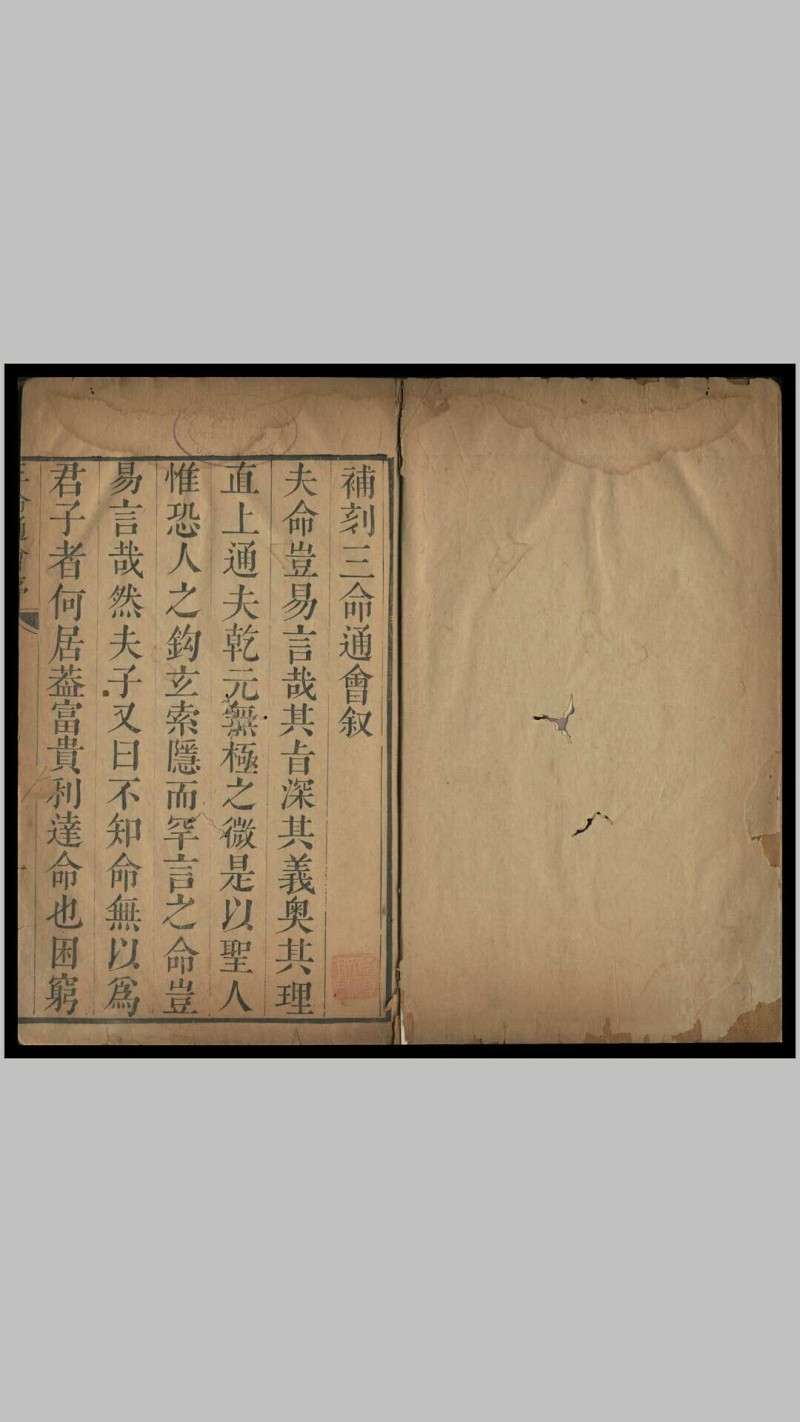 補刻三命通會叙
夫命豈易言哉其㫖深其義奥其理
直上通夫乾元無極之微是以聖人
惟恐人之鈎玄索隱而罕言之命豈
易言哉然夫子又曰不知命無以爲
君子者何居葢富貴利達命也困窮